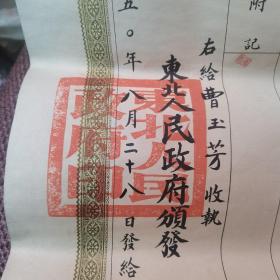 附記
右給曹玉芳收執
東北人民政府頒發
五〇年八月二十八日發給